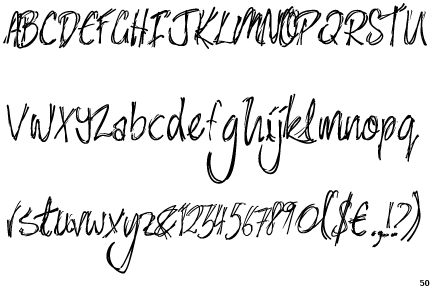 ABCDEFGHIJKLMNOPQRSTU
VWXYZabcdefghijklmnopq
rstuvwxyz&1234567890($€.,!?)
50